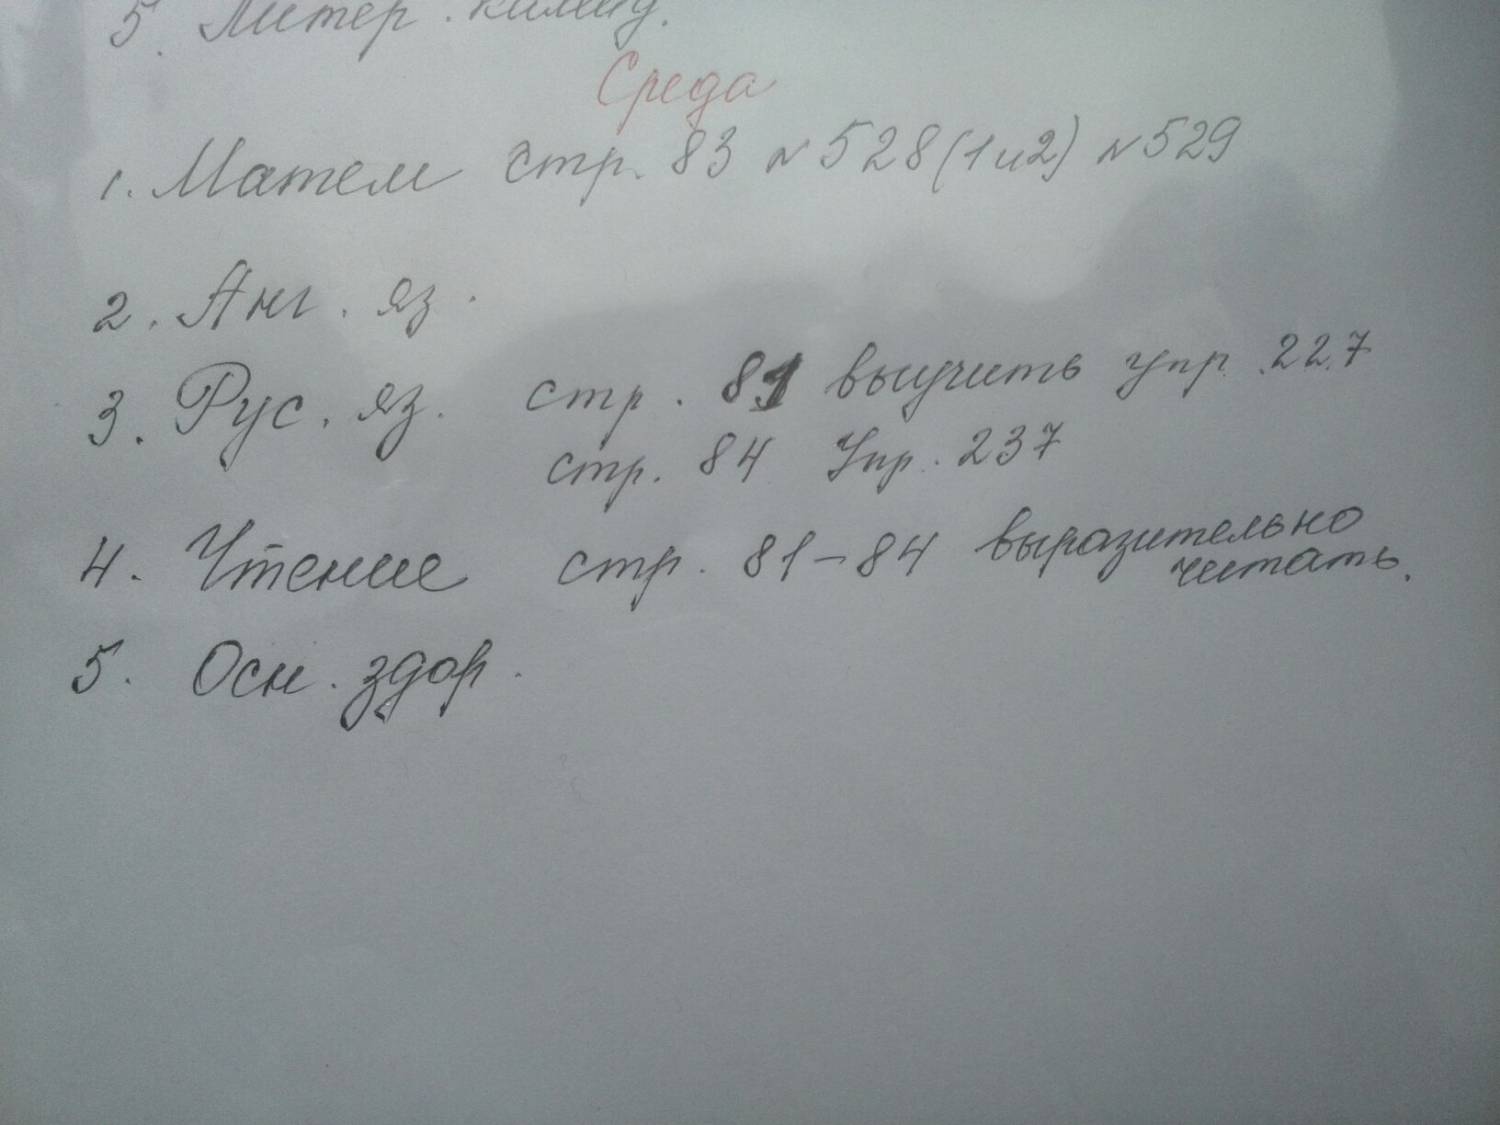 5. Литер.
Среда
1. Матем стр. 83 №528(1и2) №529
2. Анг. яз.
3. Рус. яз. стр. 81 выучить упр. 227
стр. 84 Упр. 237
4. Чтение стр. 81-84 выразительно
читать.
5. Осн. здор.